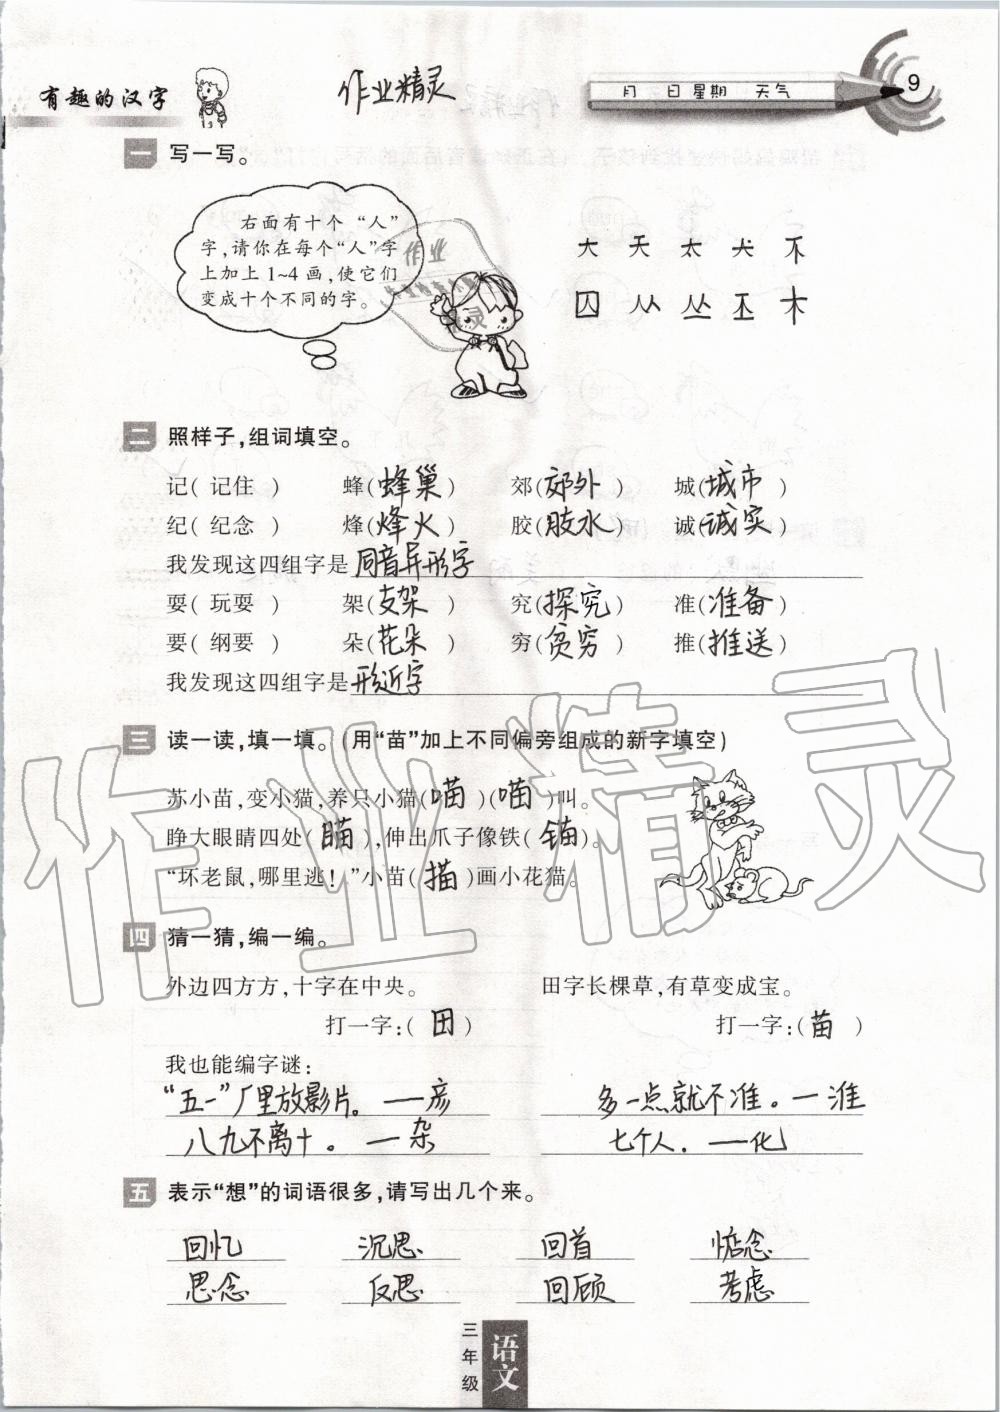 有趣的汉字
作业精灵
月 日 星期 天气
9
一 写一写。
右面有十个“人”
字,请你在每个“人”字
上加上1~4画,使它们
变成十个不同的字。
大 天 太 犬 不
囚 从 丛 丕 木
二 照样子,组词填空。
记( 记住 ) 蜂( 蜂巢 ) 郊( 郊外 ) 城( 城市 )
纪( 纪念 ) 烽( 烽火 ) 胶( 胶水 ) 诚( 诚实 )
我发现这四组字是 同音异形字
耍( 玩耍 ) 架( 支架 ) 究( 探究 ) 准( 准备 )
要( 纲要 ) 朵( 花朵 ) 穷( 贫穷 ) 推( 推送 )
我发现这四组字是 形近字
三 读一读,填一填。(用“苗”加上不同偏旁组成的新字填空)
苏小苗,变小猫,养只小猫( 喵 )( 喵 )叫。
睁大眼睛四处( 瞄 ),伸出爪子像铁( 锚 )。
“坏老鼠,哪里逃！”小苗( 描 )画小花猫。
四 猜一猜,编一编。
外边四方方,十字在中央。 田字长棵草,有草变成宝。
打一字:( 田 ) 打一字:( 苗 )
我也能编字谜:
“五一”厂里放影片。—彦 多一点就不准。—淮
八九不离十。—杂 七个人.—化
五 表示“想”的词语很多,请写出几个来。
回忆 沉思 回首 惦念
思念 反思 回顾 考虑
三年级
语文
作业精灵